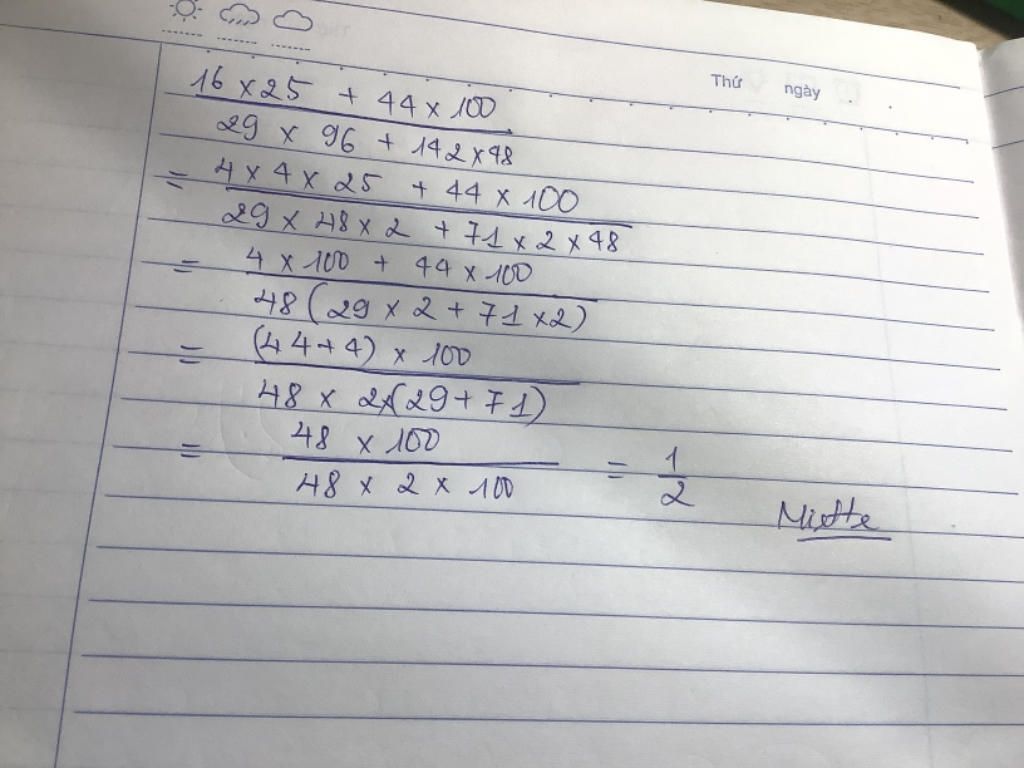 Thứ ngày
16 x 25 + 44 x 100
29 x 96 + 142 x 48
= 4 x 4 x 25 + 44 x 100
29 x 48 x 2 + 71 x 2 x 48
= 4 x 100 + 44 x 100
48 (29 x 2 + 71 x 2)
= (44 + 4) x 100
48 x 2 x (29 + 71)
= 48 x 100
48 x 2 x 100
= 1
2
Miette